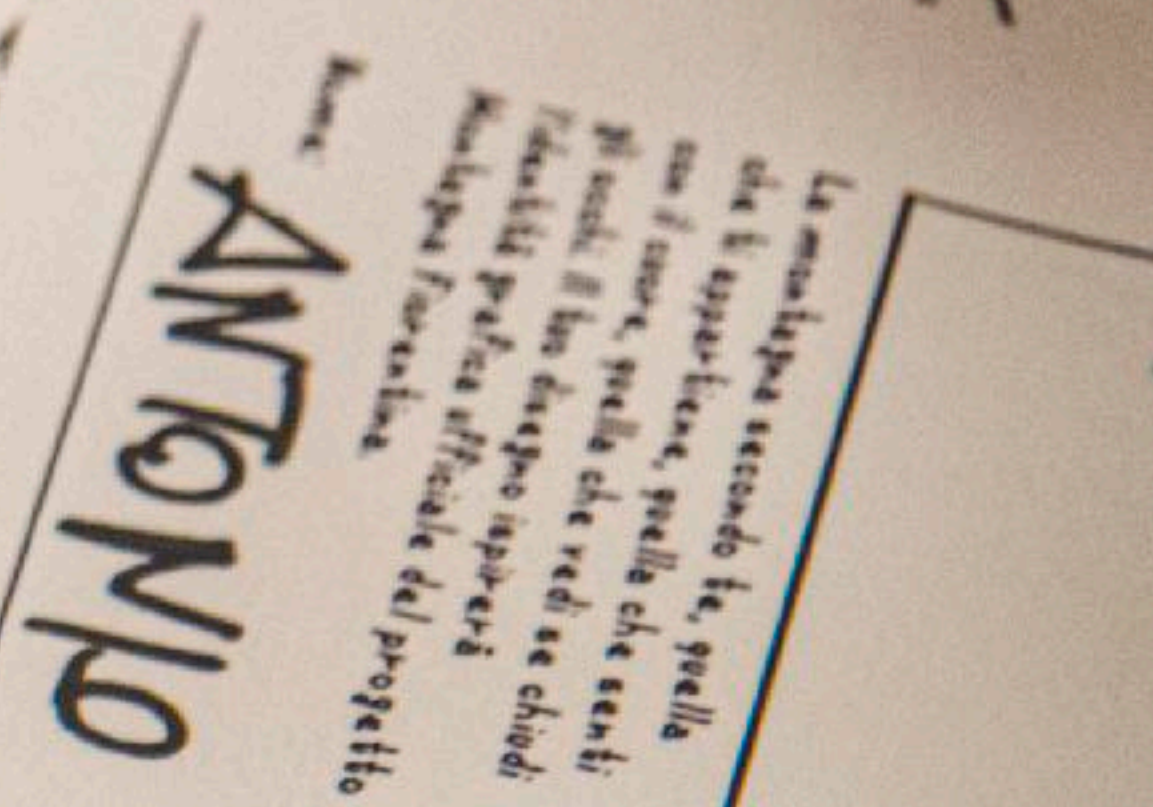 La montagna secondo te, quella
che ti appartiene, quella che senti
con il cuore, quella che vedi se chiudi
gli occhi. Il tuo disegno ispirerà
l'identità grafica ufficiale del progetto
Montagna Fiorentina
Nome:
ANTONIO